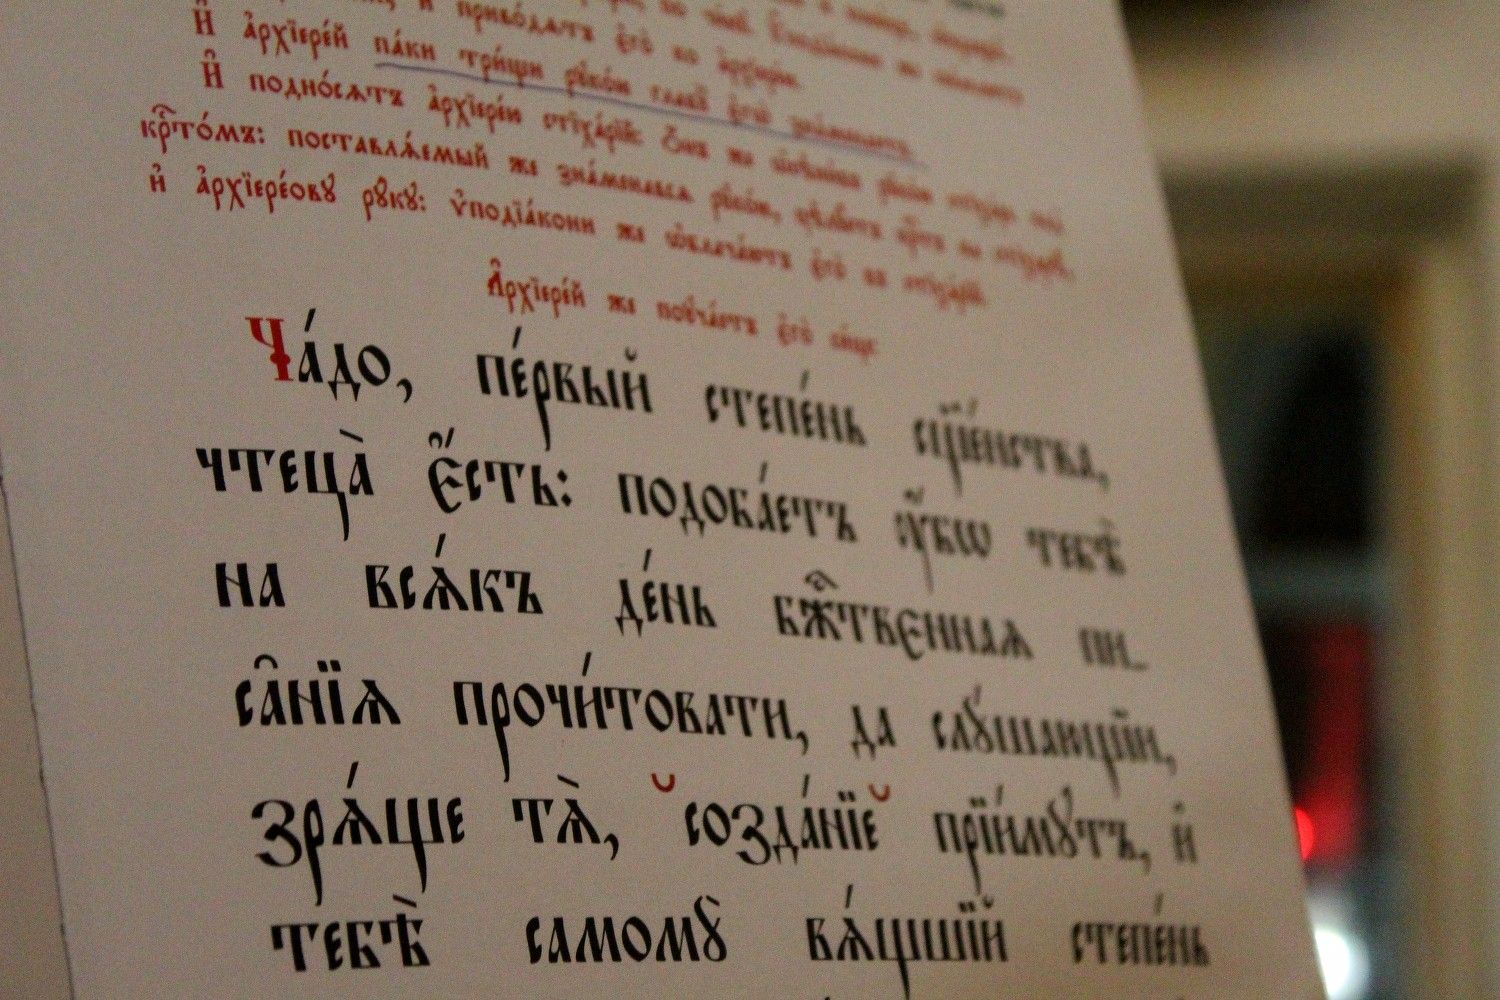 и҆ приво́дѧтъ є҆го̀ ко а҆рхїере́ю.
И҆ а҆рхїере́й па́ки три́щи руко́ю главꙋ̀ є҆гѡ̀ зна́менаетъ.
И҆ подно́сѧтъ а҆рхїере́ю стїха́рїй: Ѻ҆́нъ же
кр҇то́мъ: поставлѧ́емый же зна́менавсѧ
и҆ а҆рхїере́овꙋ рꙋ́кꙋ: ѵ҆подїа́кони же ѡ҆блача́ютъ є҆го̀ въ стїха́рїй.
А҆рхїере́й же поꙋча́етъ є҆го̀ си́це:
Ча́до, пе́рвый степе́нь сщ҃е́нства,
чтеца̀ є҆́сть: подоба́етъ ᲂу҆́бѡ тебѣ̀
на всѧ́къ де́нь бж҇твєннаѧ пи_
са̑нїѧ прочи́товати, да слꙋ́шающїи,
зрѧ́ще тѧ̀, созда́нїе прїи́мꙋтъ, и҆
тебѣ̀ самомꙋ̀ вѧ́щшїй степе́нь